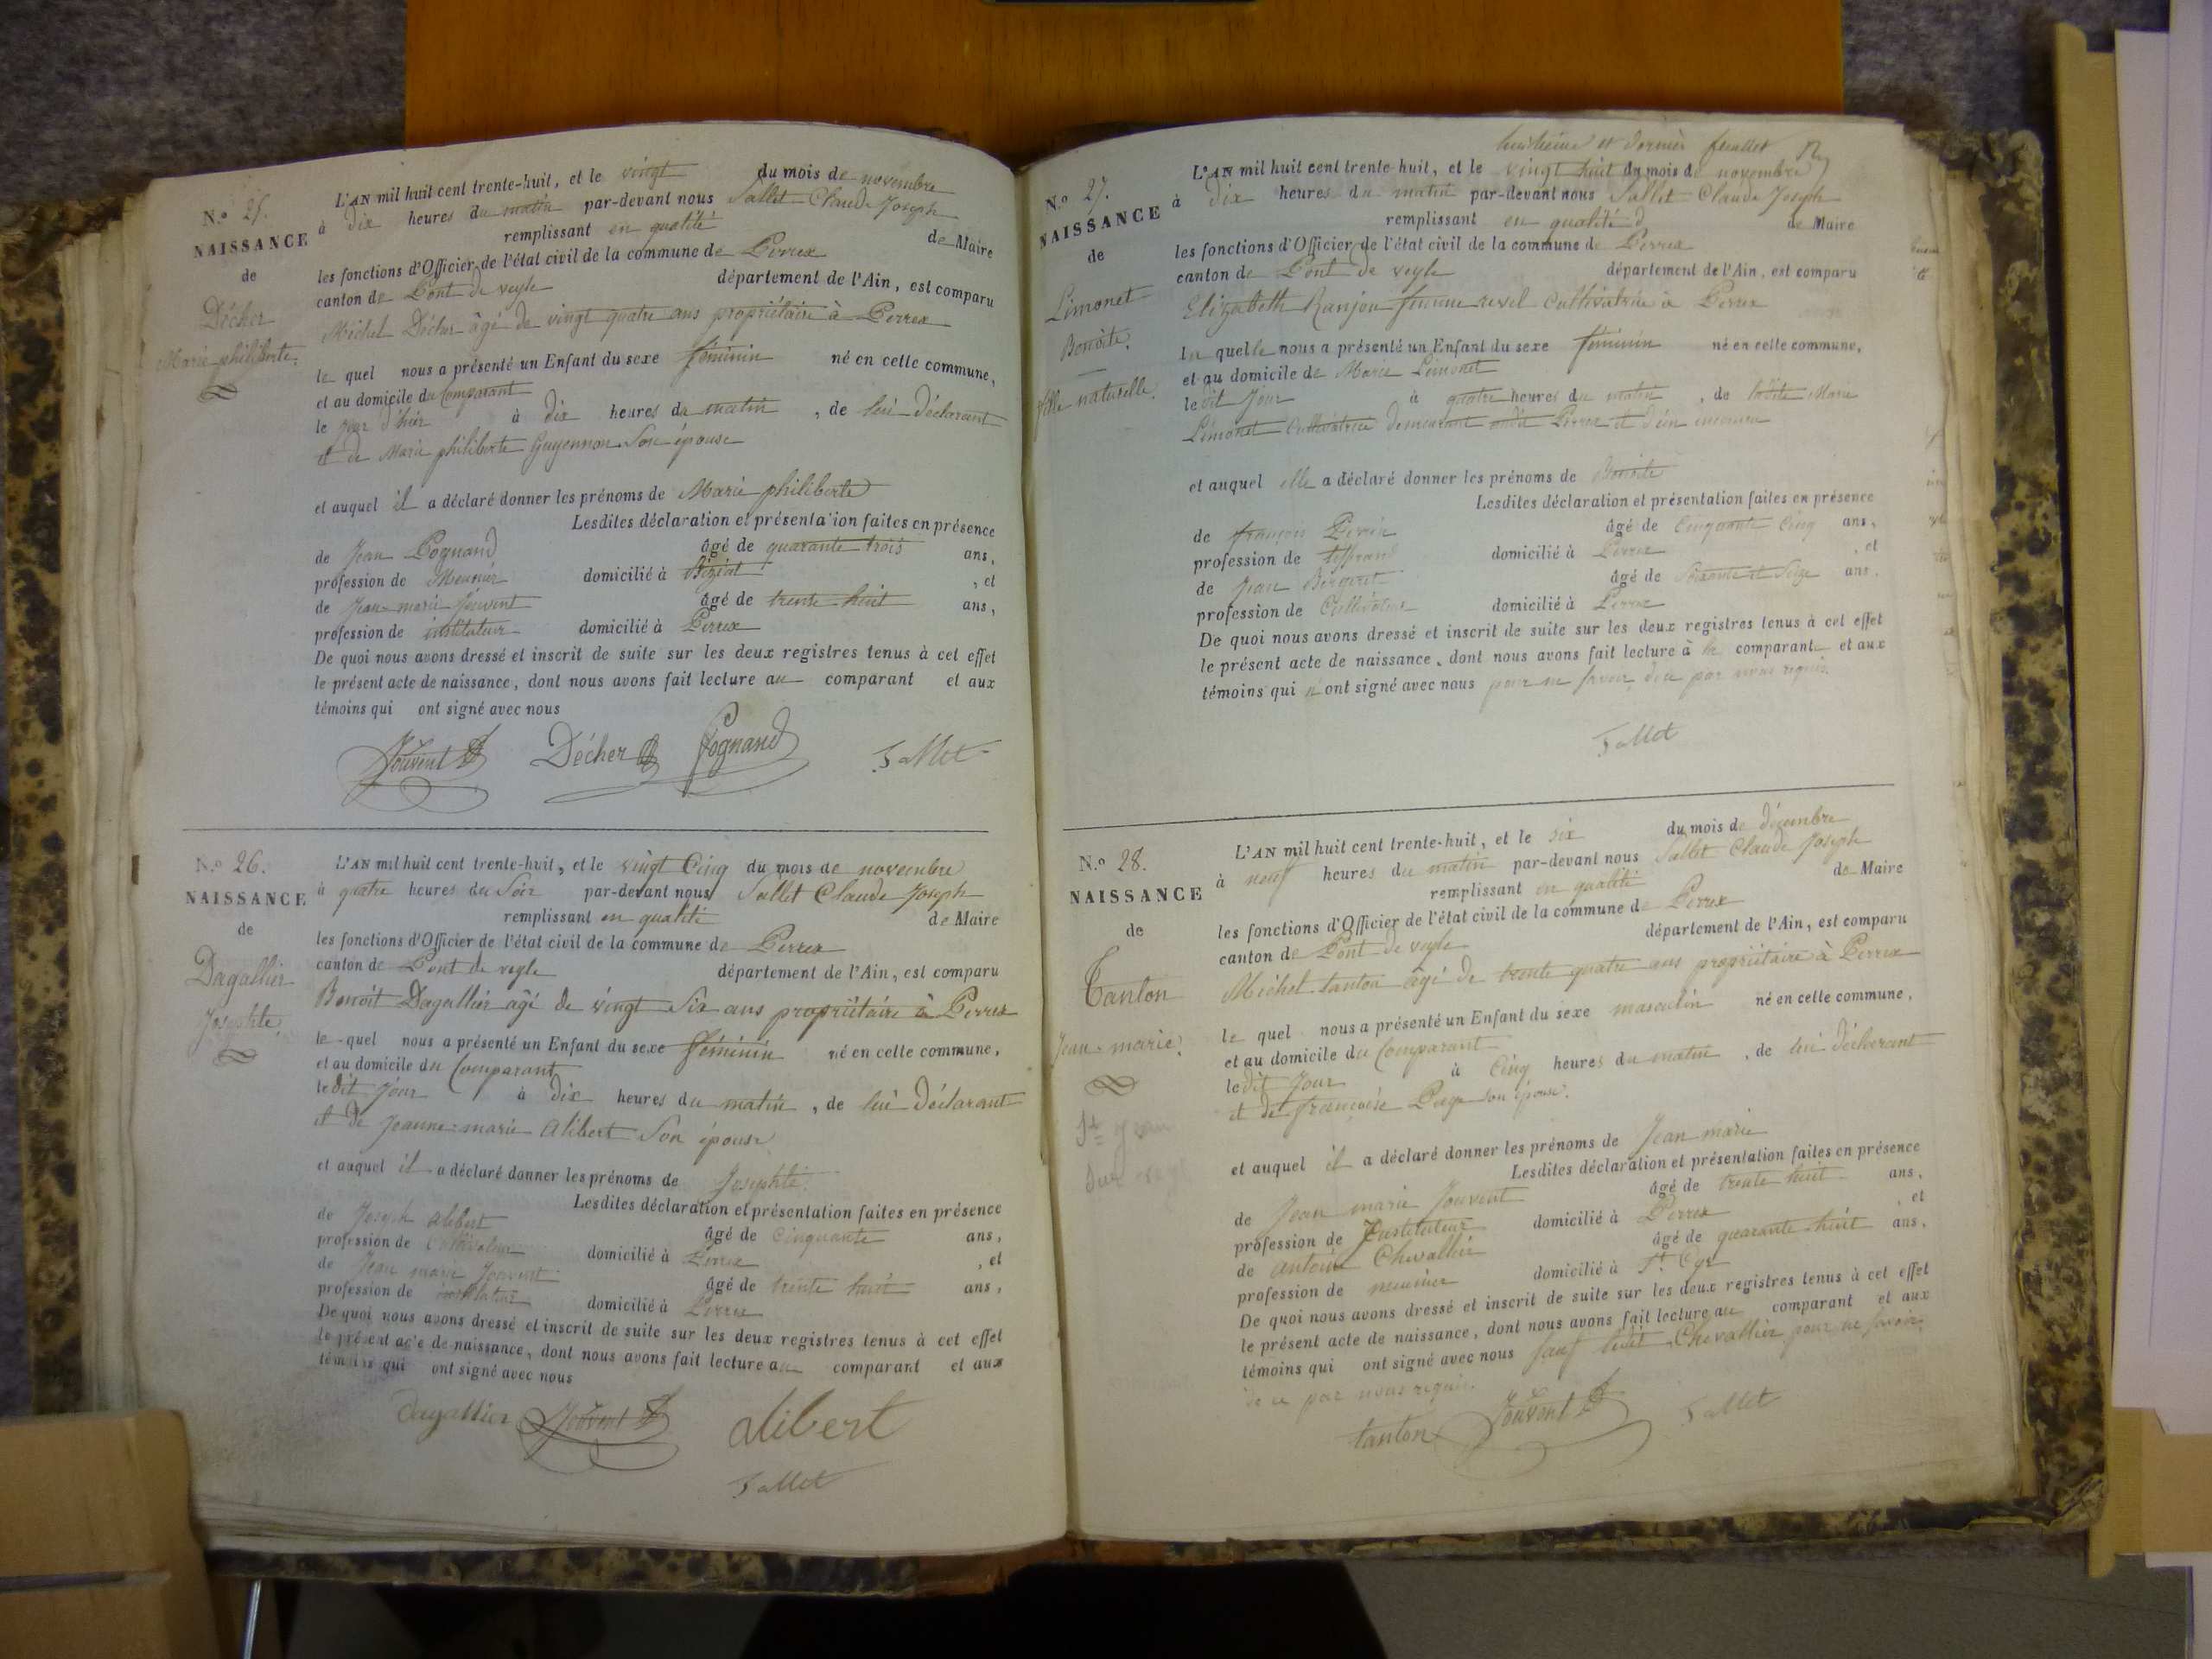 N.o 25.
NAISSANCE
de
Décher
Marie philiberte.
L'AN mil huit cent trente-huit, et le vingt du mois de novembre
à dix heures du matin par-devant nous Sallet Claude Joseph
remplissant en qualité de Maire
les fonctions d'Officier de l'état civil de la commune de Perrex
canton de Pont de veyle département de l'Ain, est comparu
Michel Décher âgé de vingt quatre ans propriétaire à Perrex
le quel nous a présenté un Enfant du sexe féminin né en cette commune,
et au domicile du Comparant
le jour d'hier à dix heures du matin, de lui déclarant
et de Marie philiberte Guyennon Son épouse
et auquel il a déclaré donner les prénoms de Marie philiberte
Lesdites déclaration et présentation faites en présence
de Jean Pognand âgé de quarante trois ans,
profession de Meunier domicilié à Biziat, et
de Jean-marie Jouvent âgé de trente huit ans,
profession de instituteur domicilié à Perrex
De quoi nous avons dressé et inscrit de suite sur les deux registres tenus à cet effet
le présent acte de naissance, dont nous avons fait lecture au comparant et aux
témoins qui ont signé avec nous
Jouvent Décher Pognand Sallet
N.o 26.
NAISSANCE
de
Dagallier
Josephte
L'AN mil huit cent trente-huit, et le vingt Cinq du mois de novembre
à quatre heures du Soir par-devant nous Sallet Claude Joseph
remplissant en qualité de Maire
les fonctions d'Officier de l'état civil de la commune de Perrex
canton de Pont de veyle département de l'Ain, est comparu
Benoit Dagallier âgé de vingt Six ans propriétaire à Perrex
le quel nous a présenté un Enfant du sexe féminin né en cette commune,
et au domicile du Comparant
le dit Jour à dix heures du matin, de lui Déclarant
et de Jeanne-marie Alibert Son épouse
et auquel il a déclaré donner les prénoms de Josephte
Lesdites déclaration et présentation faites en présence
de Joseph Alibert âgé de Cinquante ans,
profession de Cultivateur domicilié à Perrex, et
de Jean marie Jouvent âgé de trente huit ans,
profession de instituteur domicilié à Perrex
De quoi nous avons dressé et inscrit de suite sur les deux registres tenus à cet effet
le présent acte de naissance, dont nous avons fait lecture au comparant et aux
témoins qui ont signé avec nous
Dagallier Jouvent alibert
Sallet
huitième et dernier feuillet
N.o 27.
NAISSANCE
de
Limonet
Benoite.
fille naturelle.
L'AN mil huit cent trente-huit, et le vingt huit du mois de novembre
à Dix heures du matin par-devant nous Sallet Claude Joseph
remplissant en qualité de Maire
les fonctions d'Officier de l'état civil de la commune de Perrex
canton de Pont de veyle département de l'Ain, est comparu
Elizabeth Ranjon femme revel Cultivatrice à Perrex
la quelle nous a présenté un Enfant du sexe féminin né en cette commune,
et au domicile de Marie Limonet
le dit Jour à quatre heures du matin, de ladite Marie
Limonet Cultivatrice demeurant Perrex et d'un inconnu
et auquel elle a déclaré donner les prénoms de Benoite
Lesdites déclaration et présentation faites en présence
de françois âgé de Cinquante Cinq ans,
profession de tisserand domicilié à Perrex, et
de Jean âgé de Soixante et Seize ans,
profession de Cultivateur domicilié à Perrex
De quoi nous avons dressé et inscrit de suite sur les deux registres tenus à cet effet
le présent acte de naissance, dont nous avons fait lecture à la comparante et aux
témoins qui n'ont signé avec nous pour ne savoir de ce par nous requis.
Sallet
N.o 28.
NAISSANCE
de
Tanton
Jean-marie.
St Jean
Sur veyle
L'AN mil huit cent trente-huit, et le six du mois de décembre
à neuf heures du matin par-devant nous Sallet Claude Joseph
remplissant en qualité de Maire
les fonctions d'Officier de l'état civil de la commune de Perrex
canton de Pont de veyle département de l'Ain, est comparu
Michel tanton âgé de trente quatre ans propriétaire à Perrex
le quel nous a présenté un Enfant du sexe masculin né en cette commune,
et au domicile du Comparant
le dit Jour à Cinq heures du matin, de lui déclarant
et de françoise Page son épouse.
et auquel il a déclaré donner les prénoms de Jean marie
Lesdites déclaration et présentation faites en présence
de Jean marie Jouvent âgé de trente huit ans,
profession de Instituteur domicilié à Perrex, et
de antoine Chevallier âgé de quarante huit ans,
profession de meunier domicilié à St. Cyr
De quoi nous avons dressé et inscrit de suite sur les deux registres tenus à cet effet
le présent acte de naissance, dont nous avons fait lecture au comparant et aux
témoins qui ont signé avec nous Sauf ledit Chevallier pour ne savoir
de ce par nous requis.
tanton Jouvent Sallet